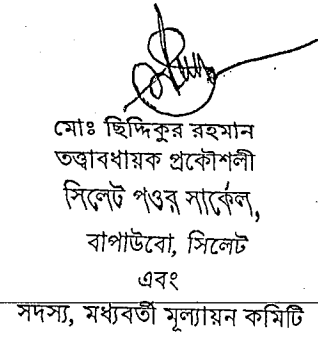 মোঃ ছিদ্দিকুর রহমান
তত্ত্বাবধায়ক প্রকৌশলী
সিলেট পওর সার্কেল,
বাপাউবো, সিলেট
এবং
সদস্য, মধ্যবর্তী মূল্যায়ন কমিটি